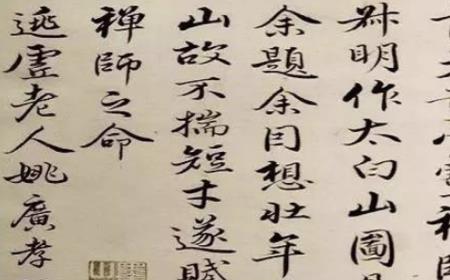 叔明作太白山圖
余題余因想壯年
山故不揣短才遂賦
禪師之命
逃虛老人姚廣孝